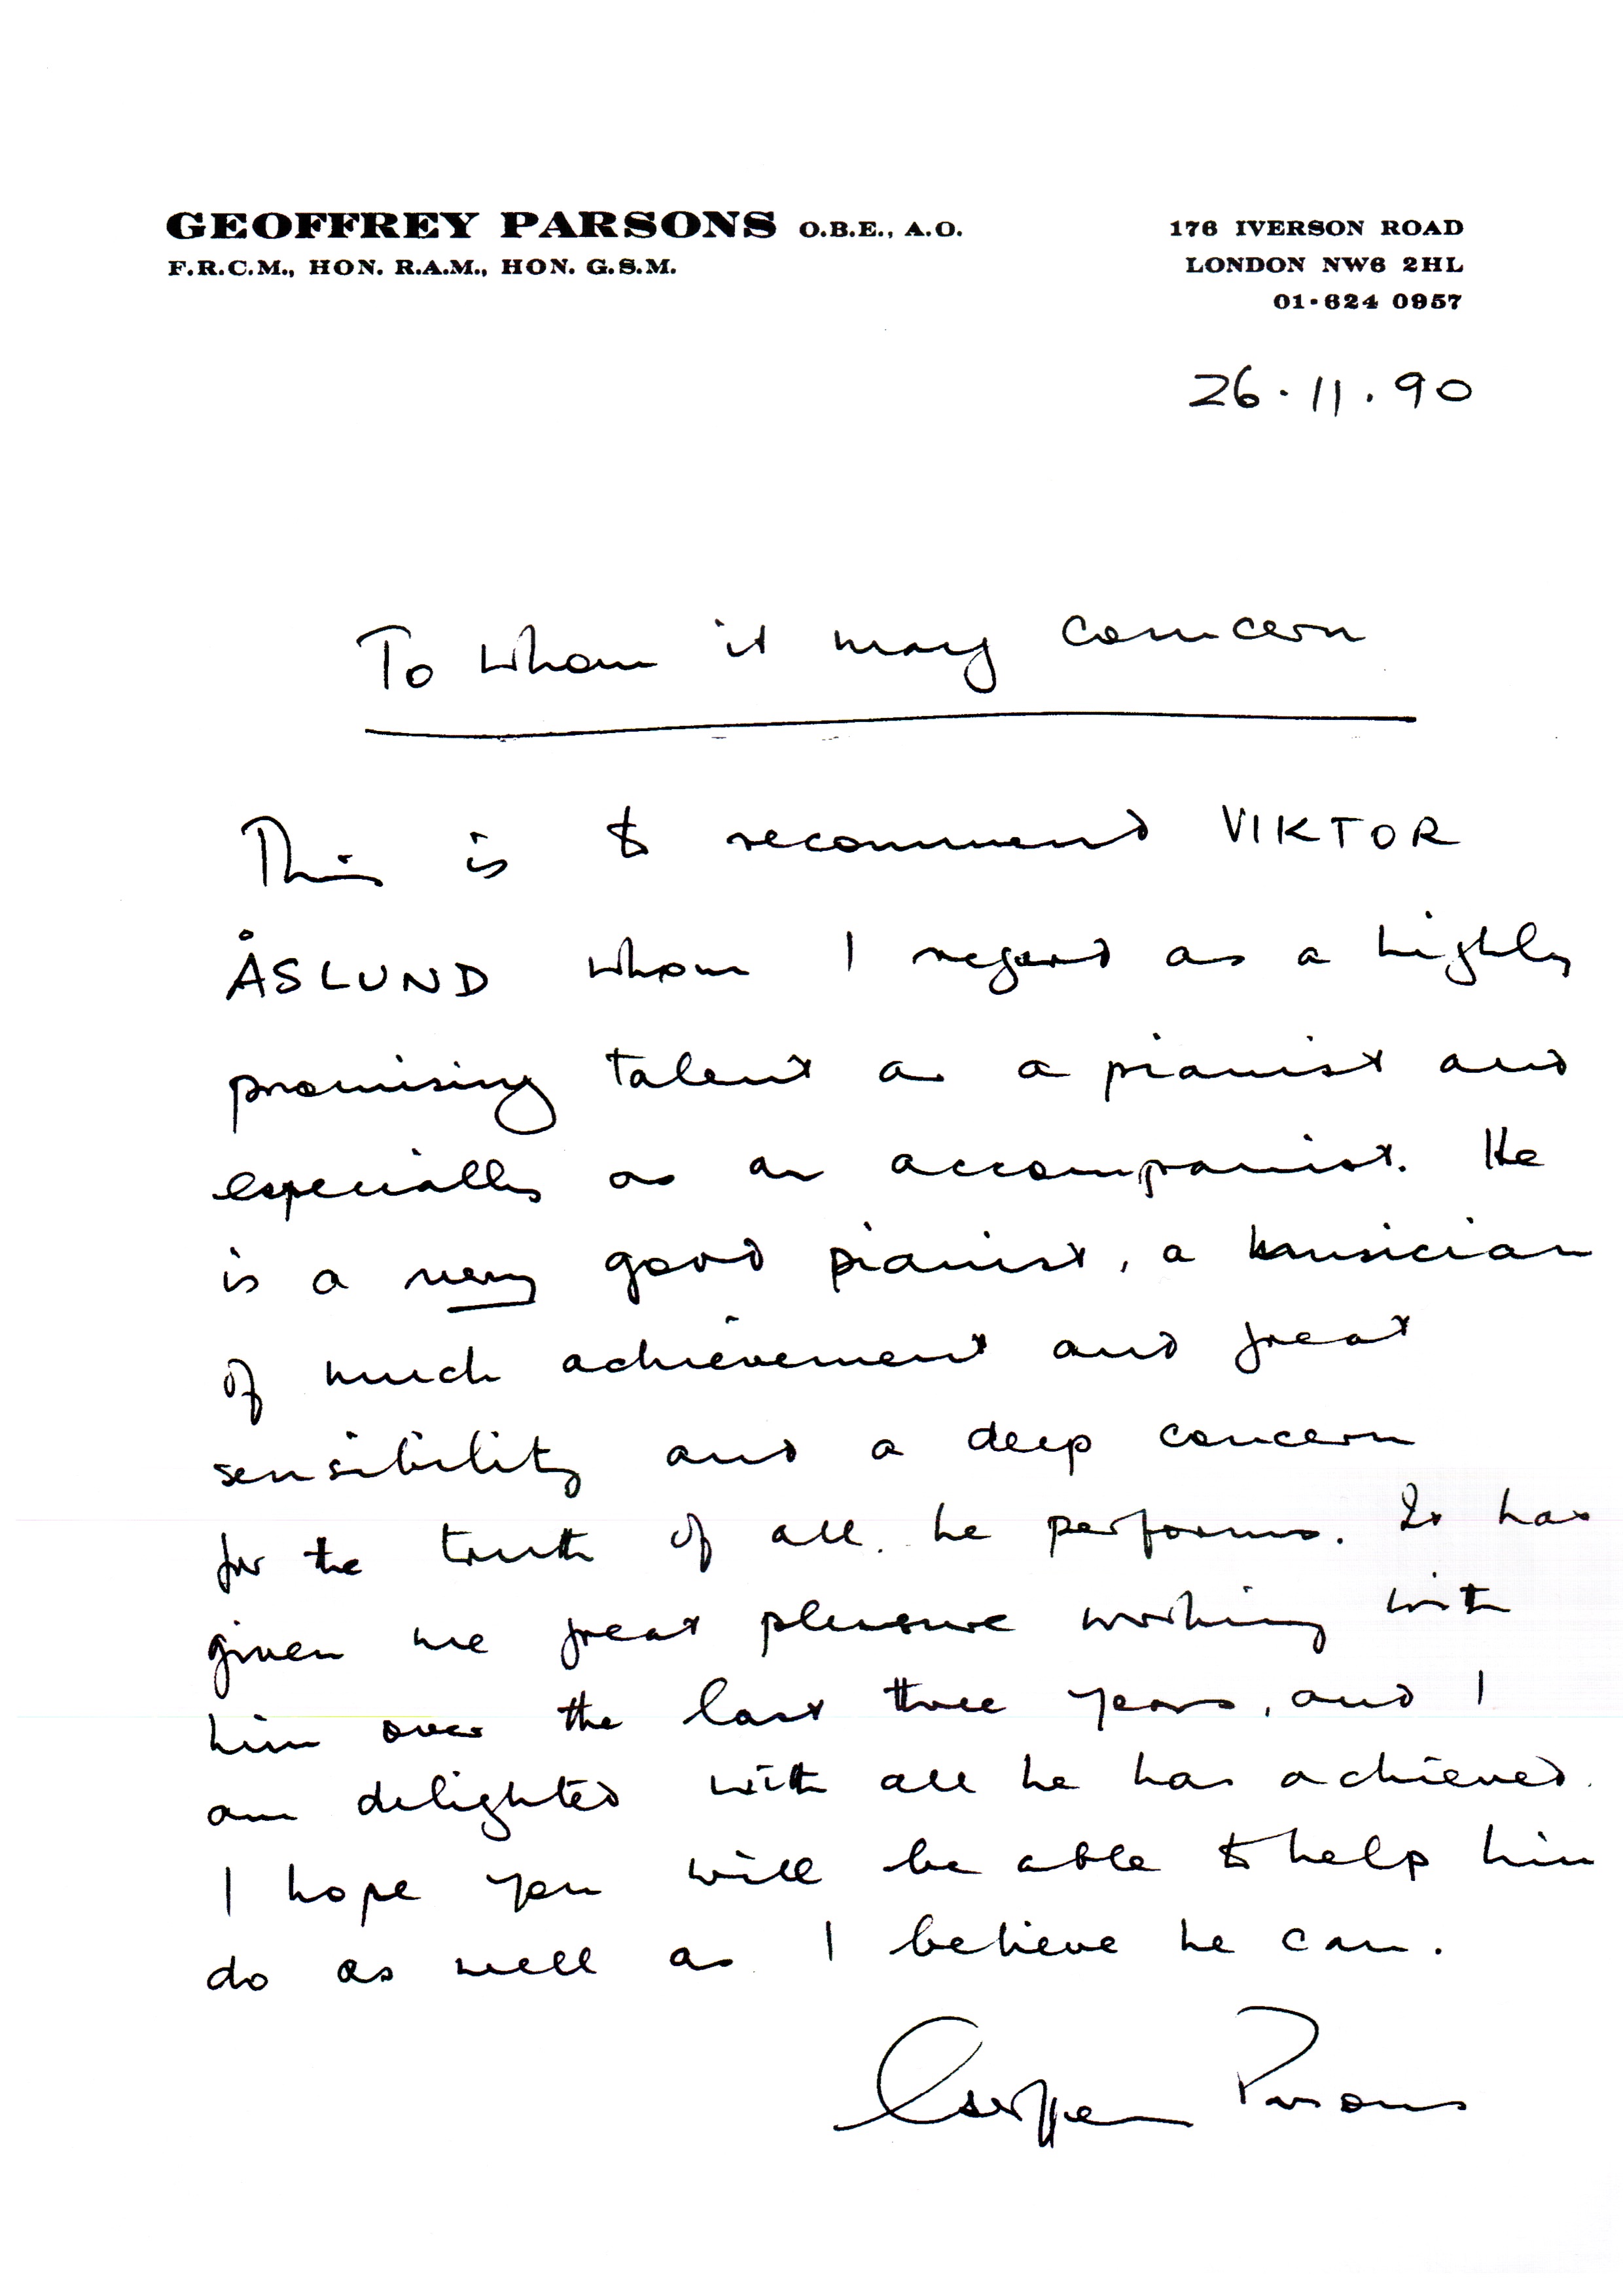 GEOFFREY PARSONS O.B.E., A.O.
F.R.C.M., HON. R.A.M., HON. G.S.M.
176 IVERSON ROAD
LONDON NW6 2HL
01·624 0957
26.11.90
To whom it may concern
This is to recommend VIKTOR
ÅSLUND whom I regard as a highly
promising talent as a pianist and
especially as an accompanist. He
is a very good pianist, a musician
of much achievement and great
sensibility and a deep concern
for the truth of all he performs. It has
given me great pleasure working with
him over the last three years, and I
am delighted with all he has achieved.
I hope you will be able to help him
do as well as I believe he can.
Geoffrey Parsons